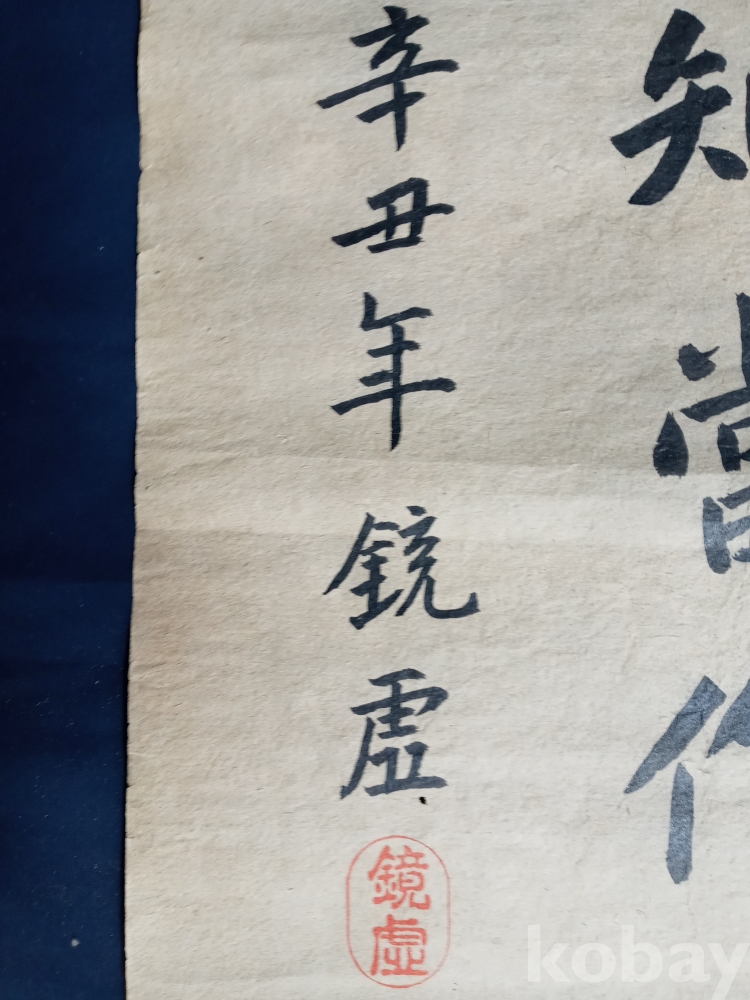 知當作
辛丑年鏡虛
鏡虛
kobay